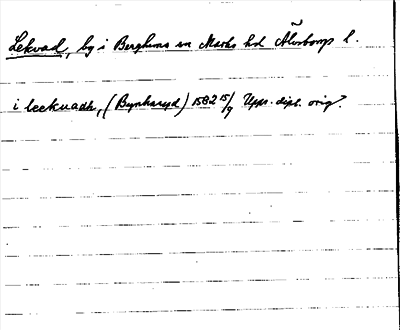 Lekvad, by i Berghems sn Marks hd Älvsborgs l.
i leekvadh, (Bynkaryd) 1582 15/9 Upps. dipl. orig.